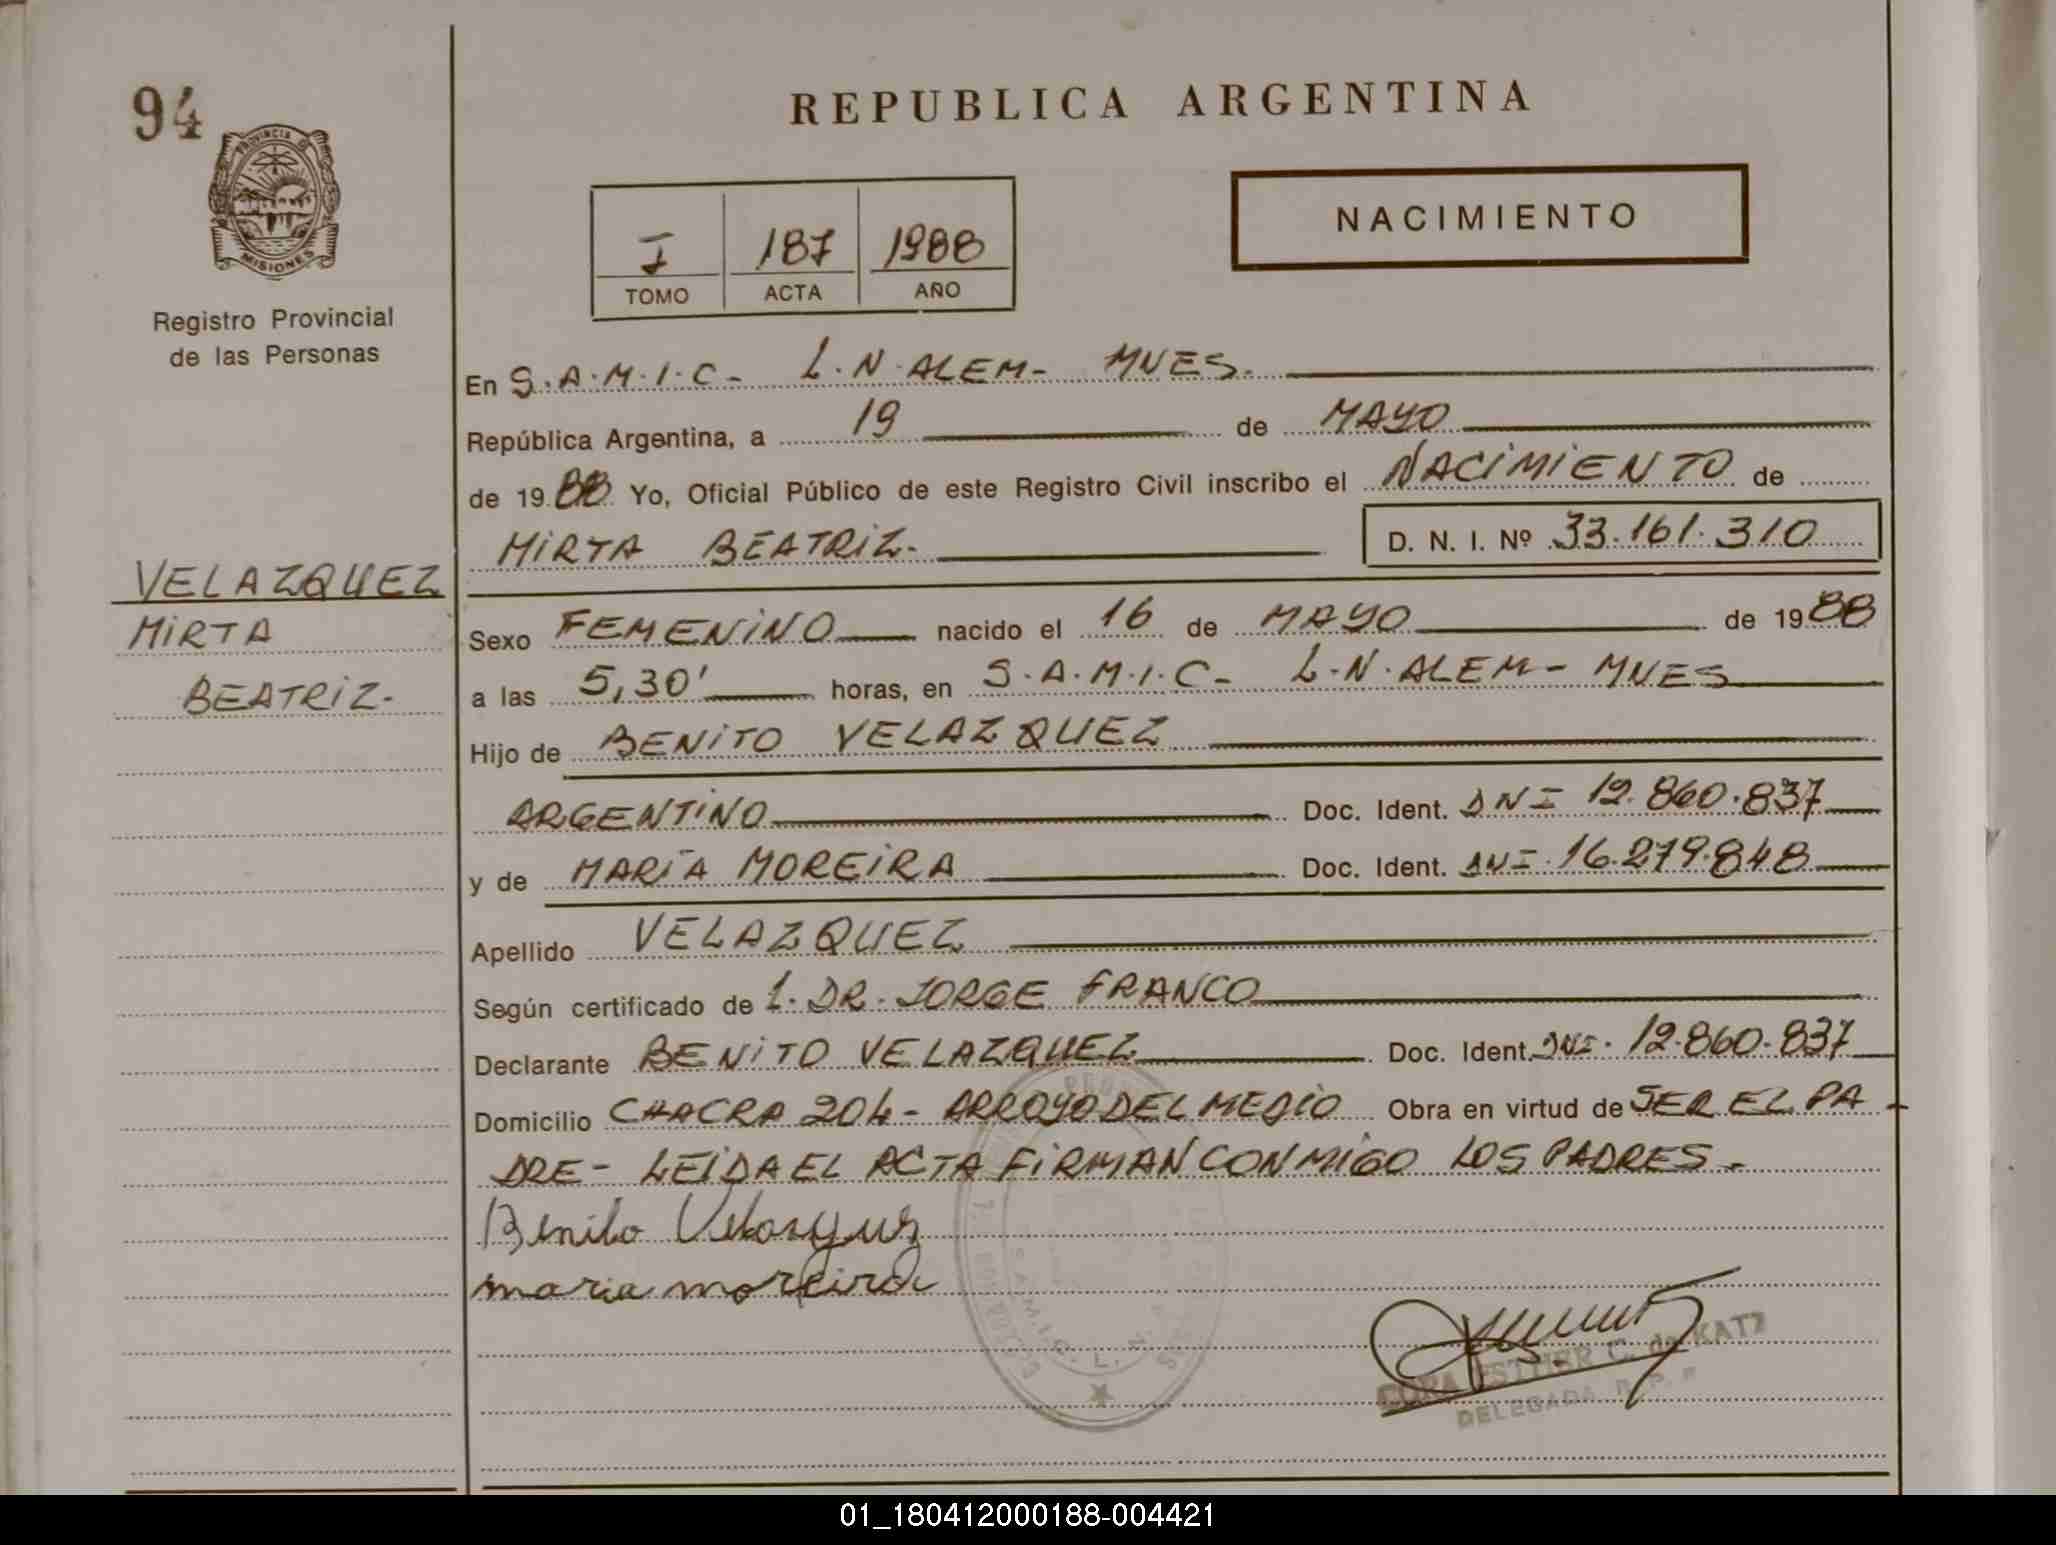 94
REPUBLICA ARGENTINA
PROVINCIA DE
MISIONES
Registro Provincial
de las Personas
I 187 1988
TOMO ACTA AÑO
NACIMIENTO
En S.A.M.I.C- L.N.ALEM- MNES.
República Argentina, a 19 de MAYO
de 1988 Yo, Oficial Público de este Registro Civil inscribo el NACIMIENTO de
MIRTA BEATRIZ.- D. N. I. Nº 33.161.310
VELAZQUEZ
MIRTA
BEATRIZ.-
Sexo FEMENINO nacido el 16 de MAYO de 1988
a las 5,30' horas, en S.A.M.I.C- L.N.ALEM- MNES
Hijo de BENITO VELAZQUEZ
ARGENTINO Doc. Ident. DNI 12.860.837
y de MARIA MOREIRA Doc. Ident. DNI. 16.279.848
Apellido VELAZQUEZ
Según certificado de L. DR. JORGE FRANCO
Declarante BENITO VELAZQUEZ Doc. Ident. DNI. 12.860.837
Domicilio CHACRA 204- ARROYO DEL MEDIO Obra en virtud de SER EL PA-
DRE- LEIDA EL ACTA FIRMAN CONMIGO LOS PADRES.-
Benito Velazquez
maria moreira
S.A.M.I.C. L.N.
CORA ESTHER C. de KATZ
DELEGADA R. P. P.
01_180412000188-004421